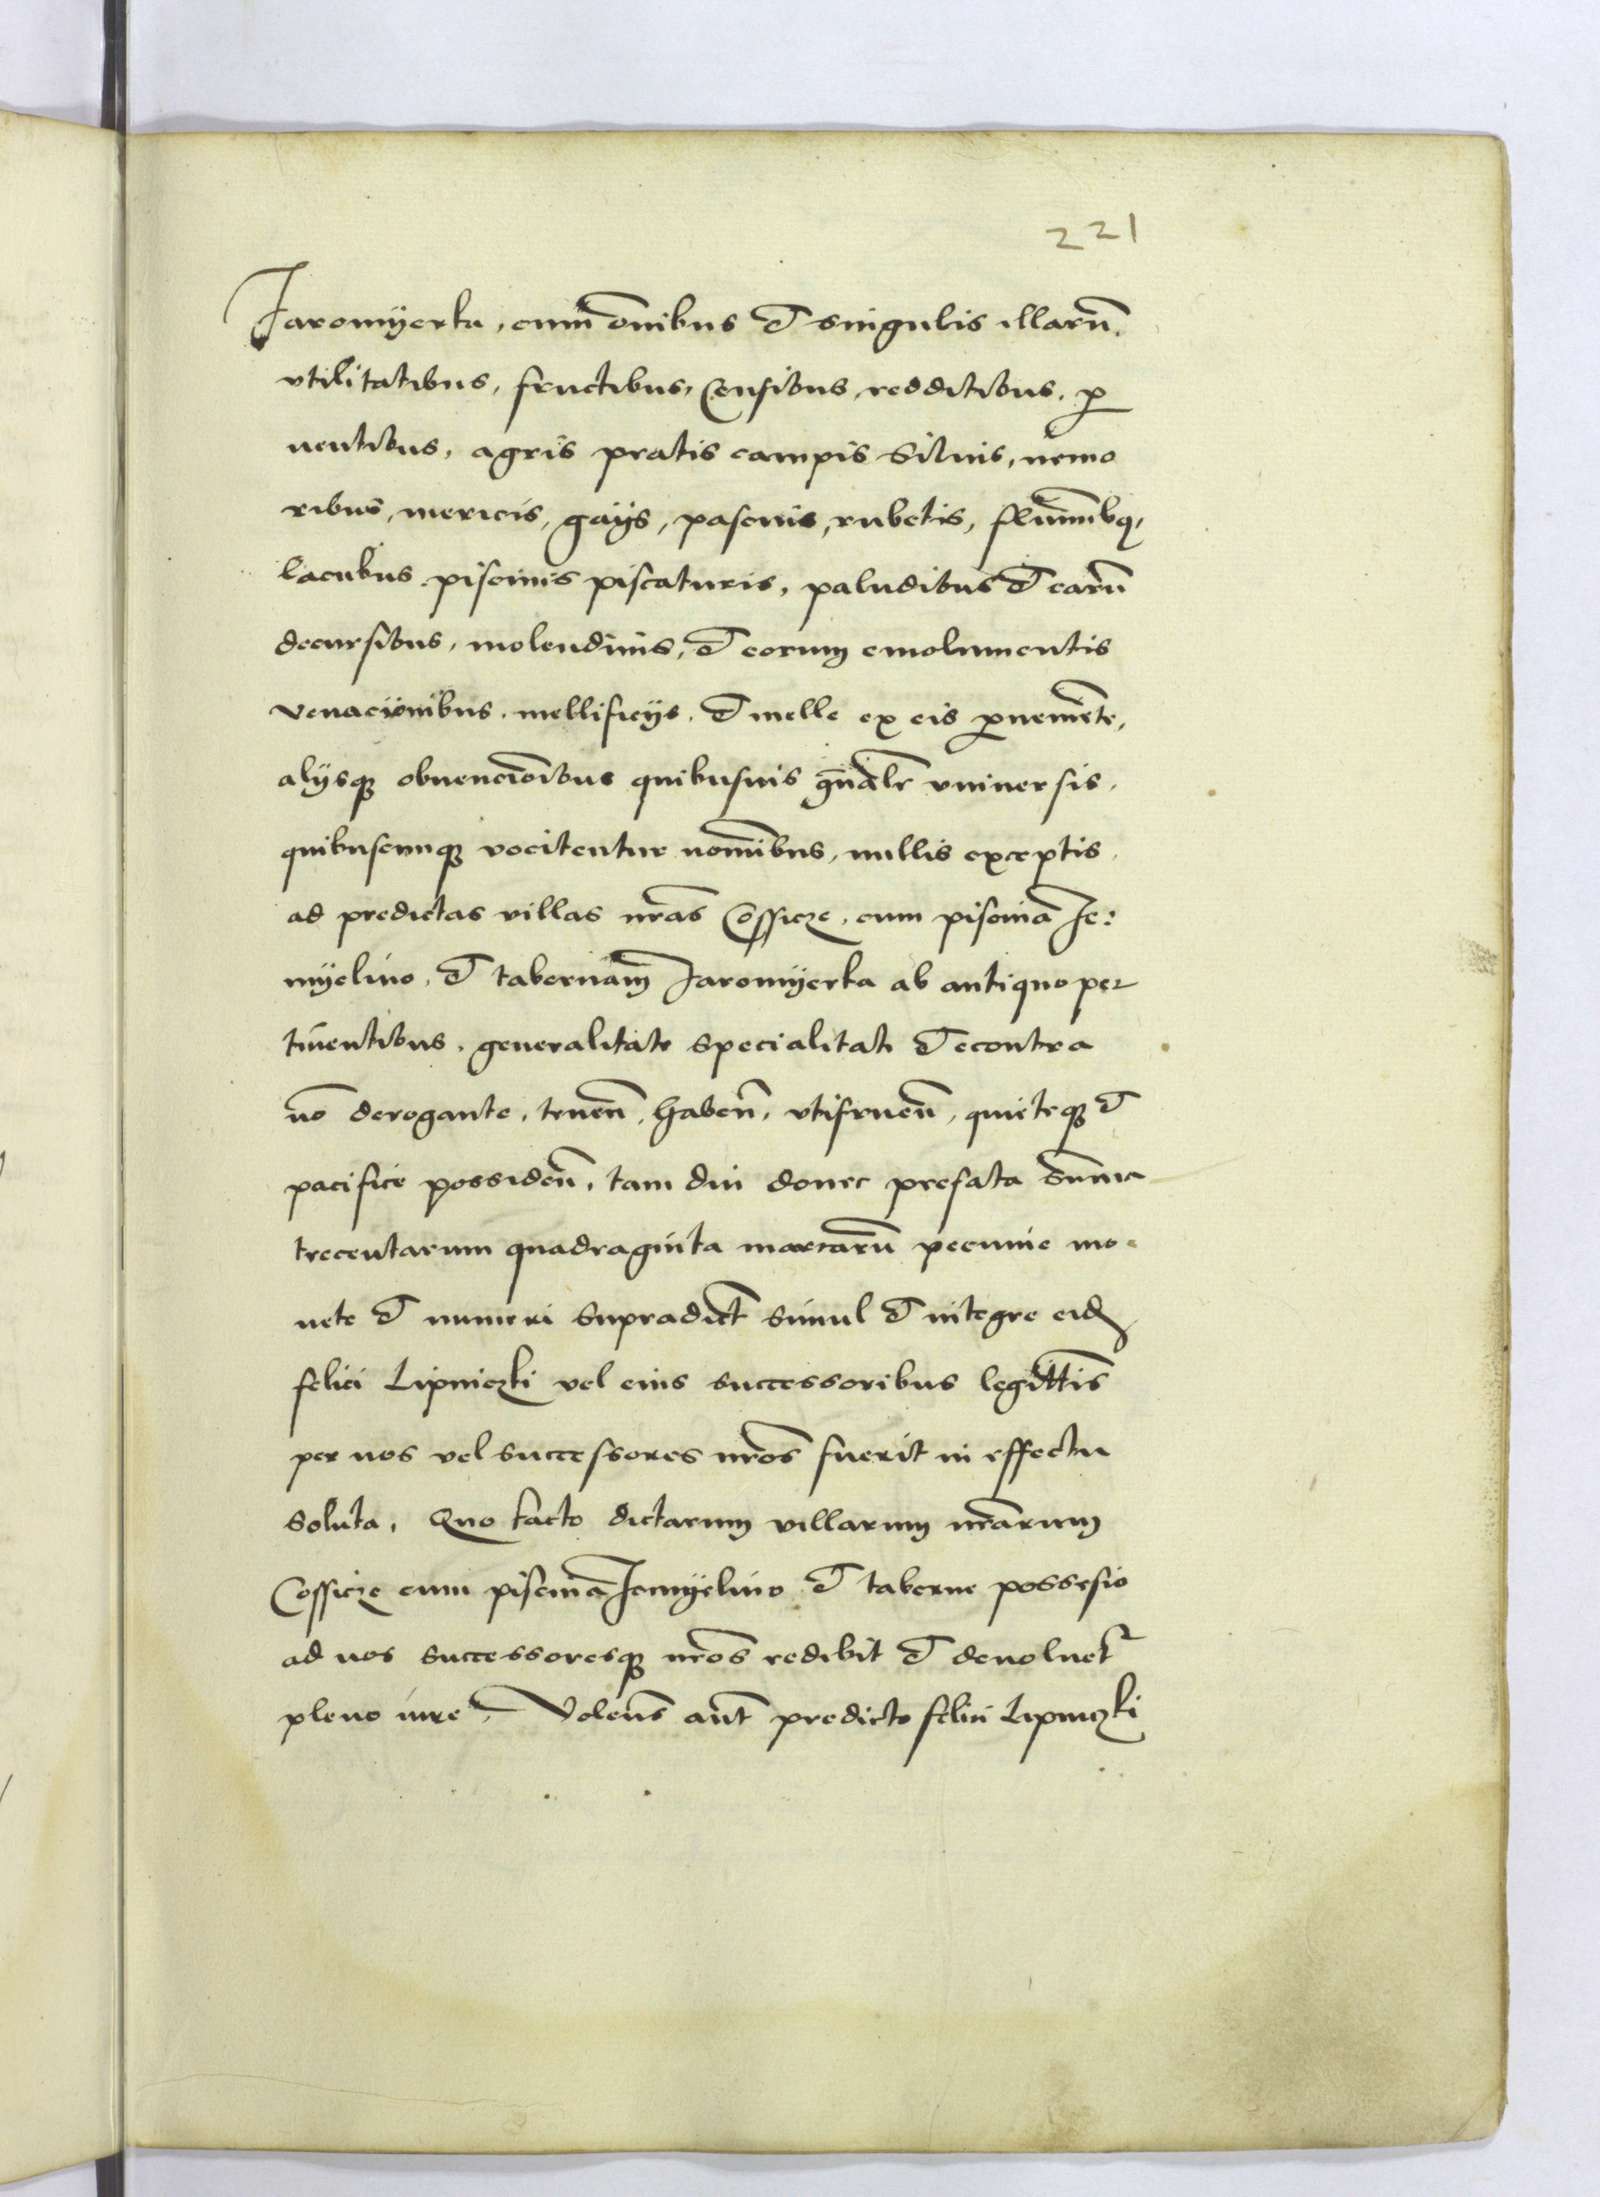 221
Jaromyerka, cum om̄ibus et singulis illarū.
vtilitatibus, fructibus, Censibus, redditibus, p
uentibus, agris pratis campis Siluis, nemo
ribus, mericis, gays, pascuis, rubetis, flumi̅bq,
lacubus piscinis piscaturis, paludibus et earū
decursibus, molendinis, et eorum emolumentis
venacionibus, mellificys, et melle ex eis pueniēte,
alysq obuencioībus quibusuis gn̄alr vniuersis,
quibuscunq vocitentur nomi̅bus, nullis exceptis,
ad predictas villas nr̄as Cossicze, cum piscina Je:
myelino, et tabernam̄ Jaromyerka ab antiquo per
tinentibus, generalitate specialitati et econtra
nō derogante, tenen̄, haben̄, vtifruen̄, quieteq et
pacifice possiden̄, tam diu donec prefata sum̄a
trecentarum quadraginta marcarū pecunie mo
nete et numeri supradict̄ simul et integre eid
felici Lipniczki vel eius successoribus legitt̄is
per nos vel successores nr̄os fuerit in effectu
soluta, Quo facto dictarum villarum nr̄arum
Cossicze cum piscina Jemyelino et taberne possesio
ad nos successoresq nr̄os redibit et deuoluet
pleno iure, Volens̄ aut̄ predicto felici Lipniczki